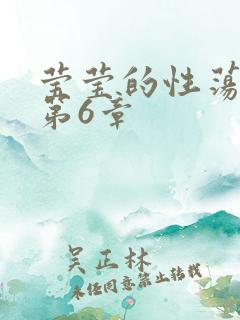 莹莹的性荡
第6章
吴正林
未经同意禁止转载